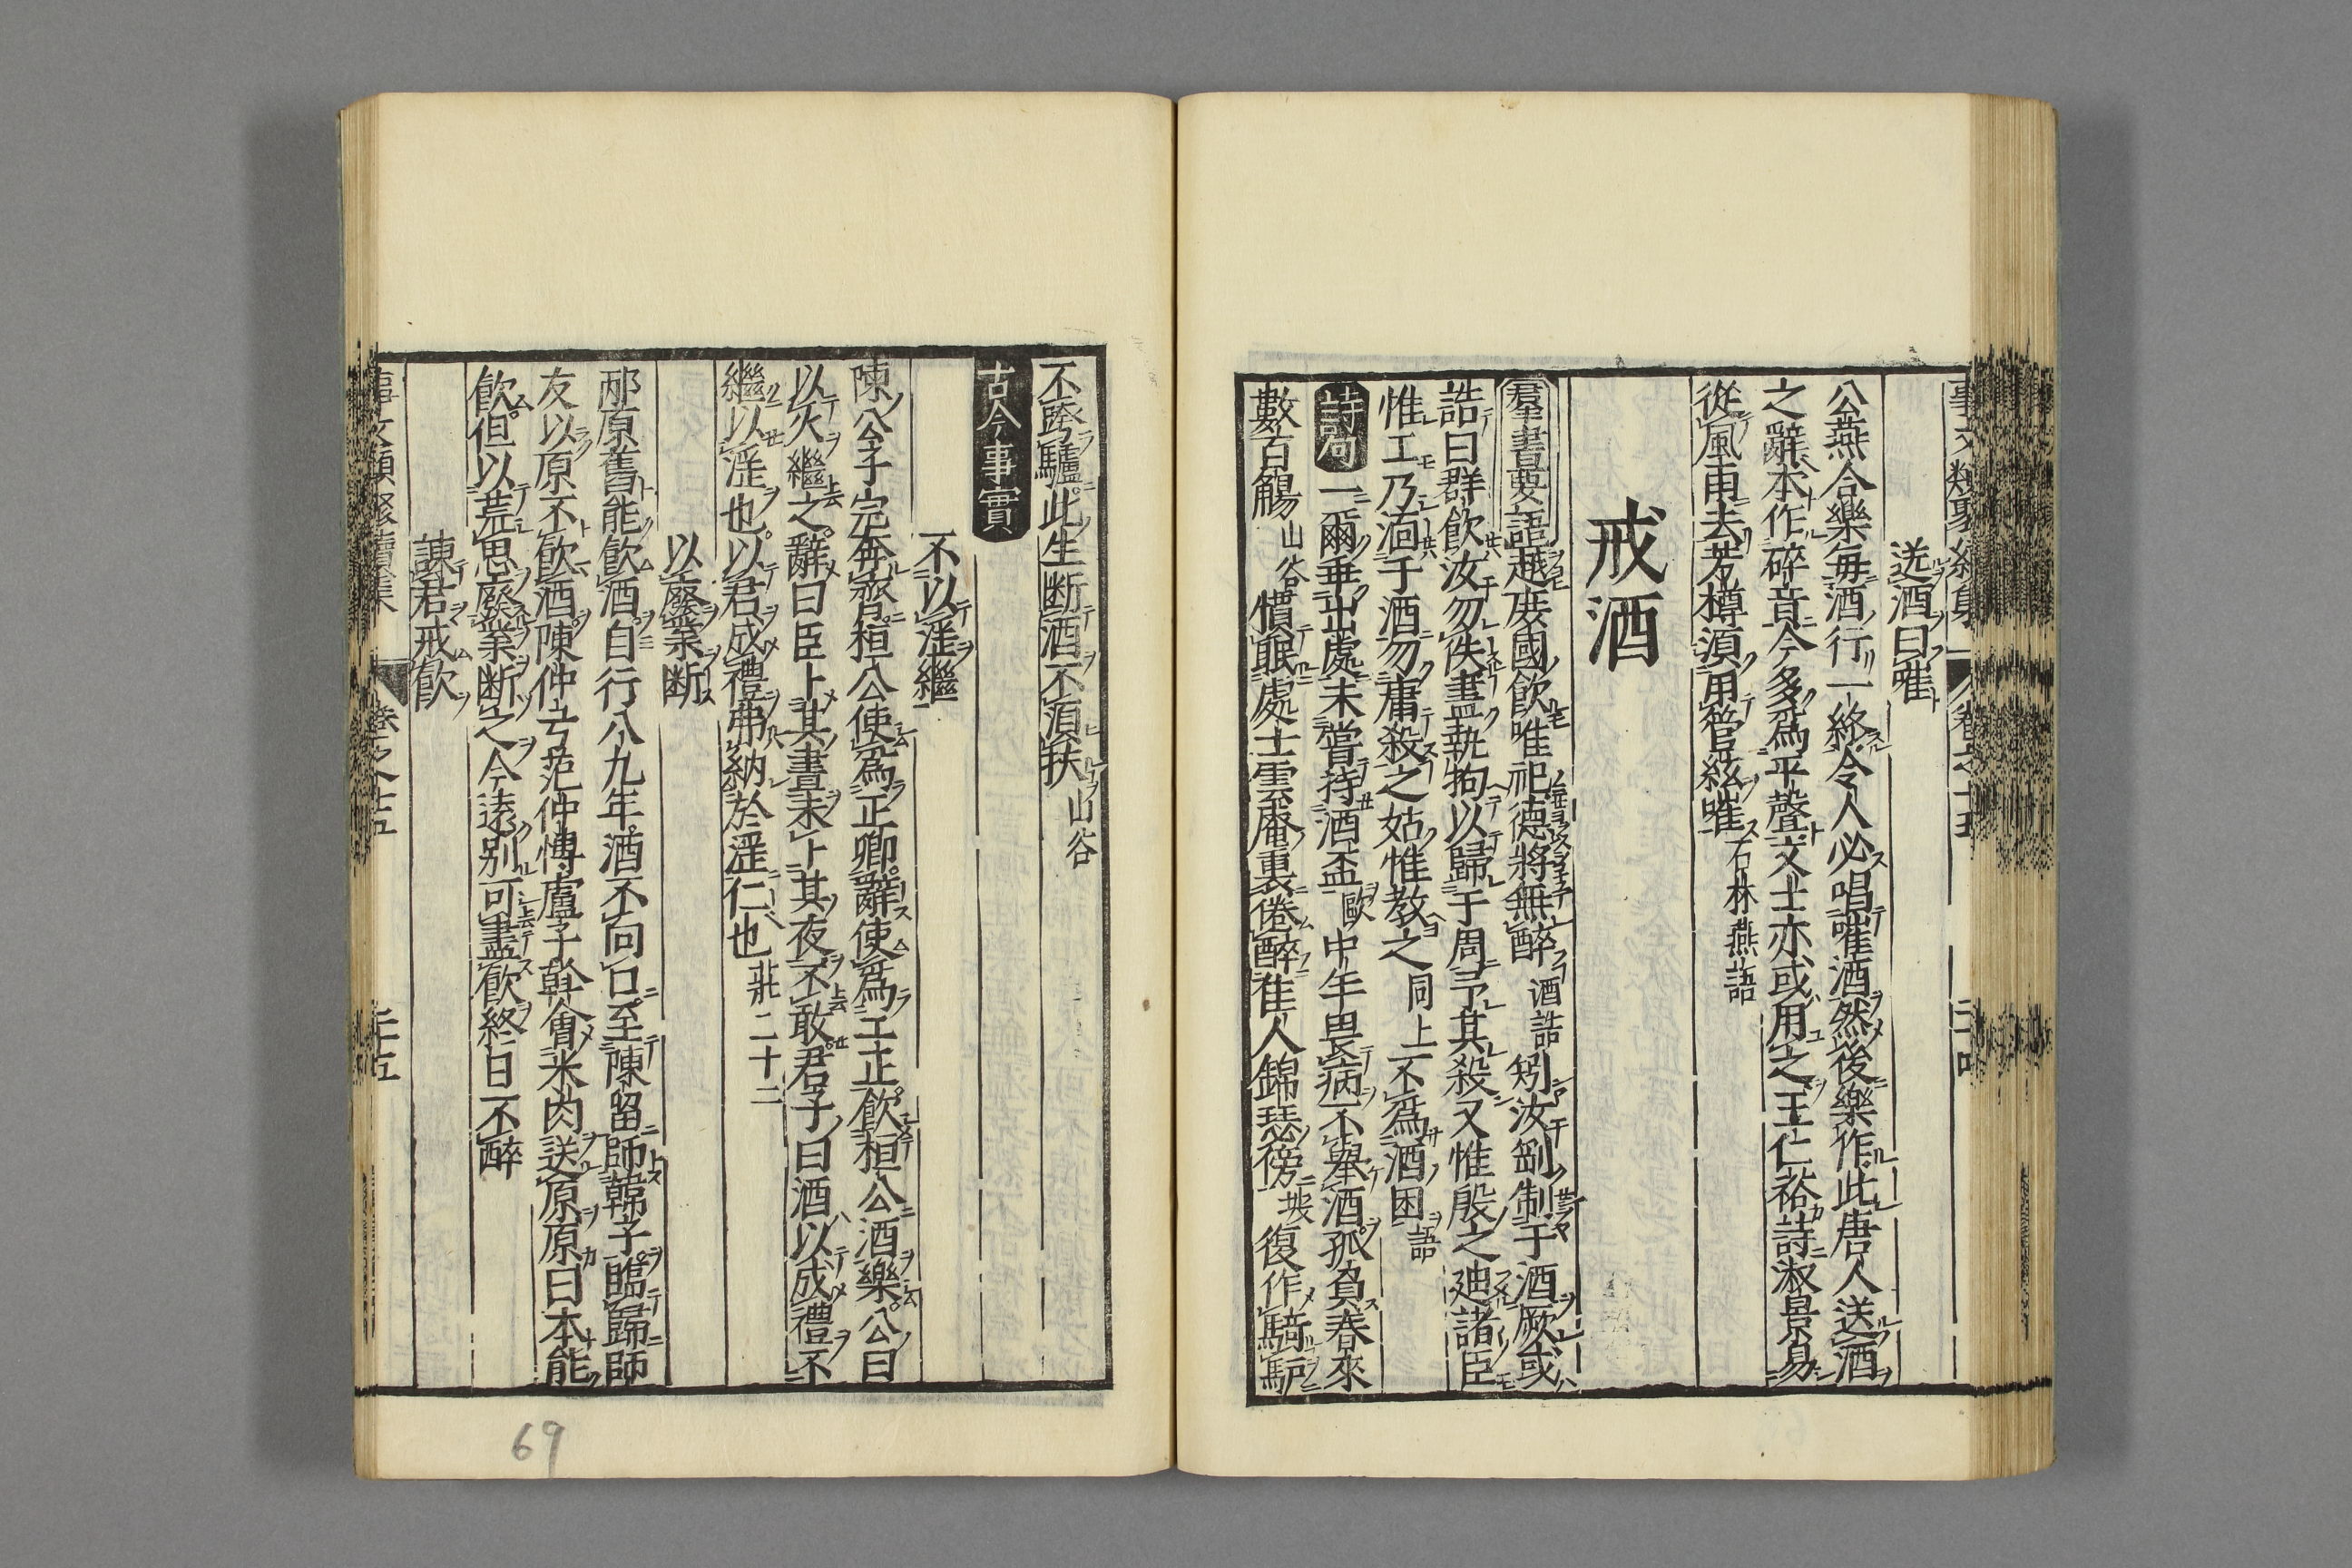 送酒曰嗺
公燕合樂每酒行一終令人必唱嗺酒然後樂作此唐人送酒
之辭本作碎音今多爲平聲文士亦或用之王仁裕詩淑景易
從風雨去芳樽須用管絃嗺 石林燕語
戒酒
羣書要語 越庻國飲唯祀德將無醉 酒誥 矧汝剛制于酒厥或
誥曰群飲汝勿佚盡執拘以歸于周予其殺又惟殷之廸諸臣
惟工乃湎于酒勿庸殺之姑惟教之 同上 不爲酒困 語
詩句 一爾垂出處未嘗待酒盃 歐 中年畏病不舉酒孤負春來
數百觴 山谷 慣眠處士雲庵裏倦醉佳人錦瑟傍 坡 復作騎驢
不跨驢此生断酒不須扶 山谷
古今事實
不以淫繼
陳公子完奔齊桓公使爲正卿辭使爲工正飲桓公酒樂公曰
以火繼之辭曰臣卜其晝未卜其夜不敢君子曰酒以成禮不
繼以淫也以君成禮弗納於淫仁也 莊二十二
以廢業断
邴原舊能飲酒自行八九年酒不向口至陳留師韓子臨歸師
友以原不飲酒陳仲亏范仲慱盧子幹會米肉送原原曰本能
飲但以荒思廢業断之今遠别可盡飲終日不醉
諌君戒飲
卷之十五
二十五
69